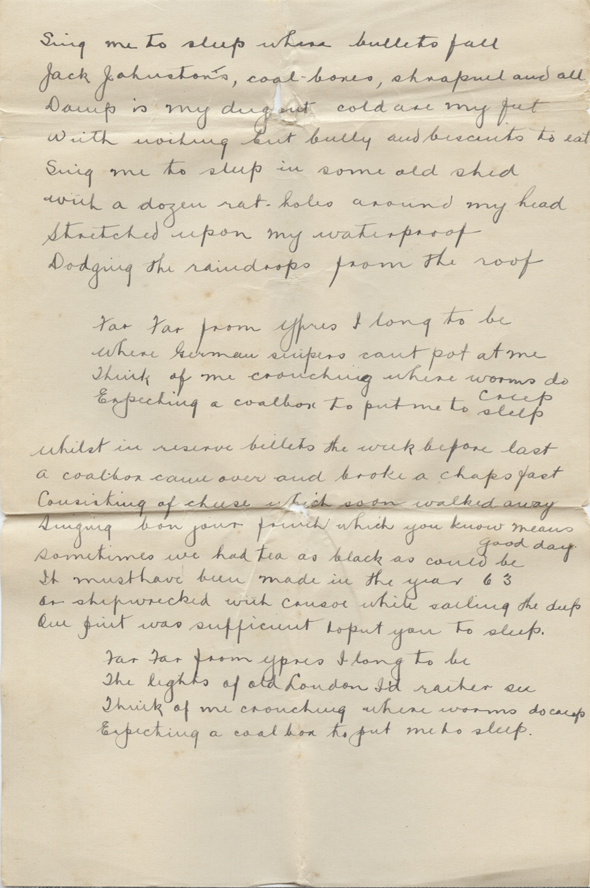 Sing me to sleep where bullets fall
Jack Johnston's, coal-boxes, shrapnel and all
Damp is my dug out cold are my feet
With nothing but bully and biscuits to eat
Sing me to sleep in some old shed
with a dozen rat-holes around my head
Stretched upon my waterproof
Dodging the raindrops from the roof
Far Far from Ypres I long to be
where German snipers cant pot at me
Think of me crouching where worms do creep
Expecting a coalbox to put me to sleep
Whilst in reserve billets the week before last
a coalbox came over and broke a chaps fast
Consisting of cheese which soon walked away
Singing bon jour which you know means
good day
Sometimes we had tea as black as could be
It must have been made in the year 63
or shipwrecked with Crusoe while sailing the deep
One pint was sufficient to put you to sleep.
Far Far from Ypres I long to be
The lights of old London I'd rather see
Think of me crouching where worms do creep
Expecting a coal box to put me to sleep.